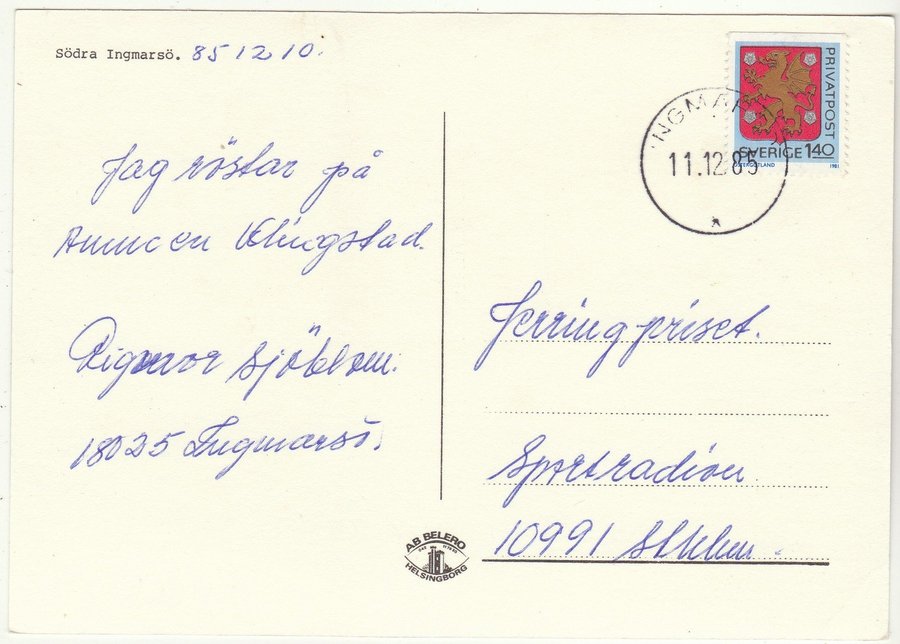 Södra Ingmarsö. 851210.
Jag röstar på
Klingstad.
Sjöblom.
18025 Ingmarsö.
INGMAR
11.12.85
PRIVATPOST
SVERIGE 140
ÖSTERGÖTLAND 1981
Jerringpriset.
Sportradion
10991 Sthlm.
AB BELERO
HELSINGBORG